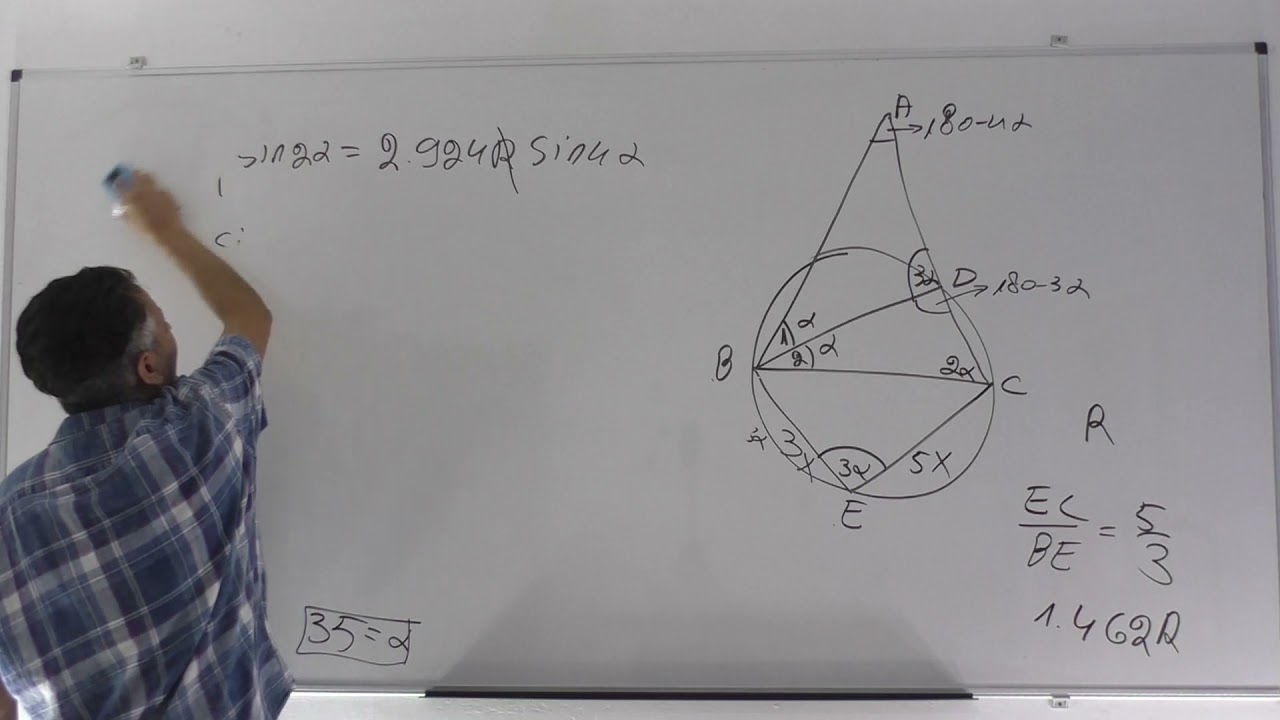 sin2α = 2.924R sin4α
A
180-4α
3α
D
180-3α
1
α
2
α
B
2α
C
3x
3α
5x
E
R
EC/BE = 5/3
1.462R
35=α